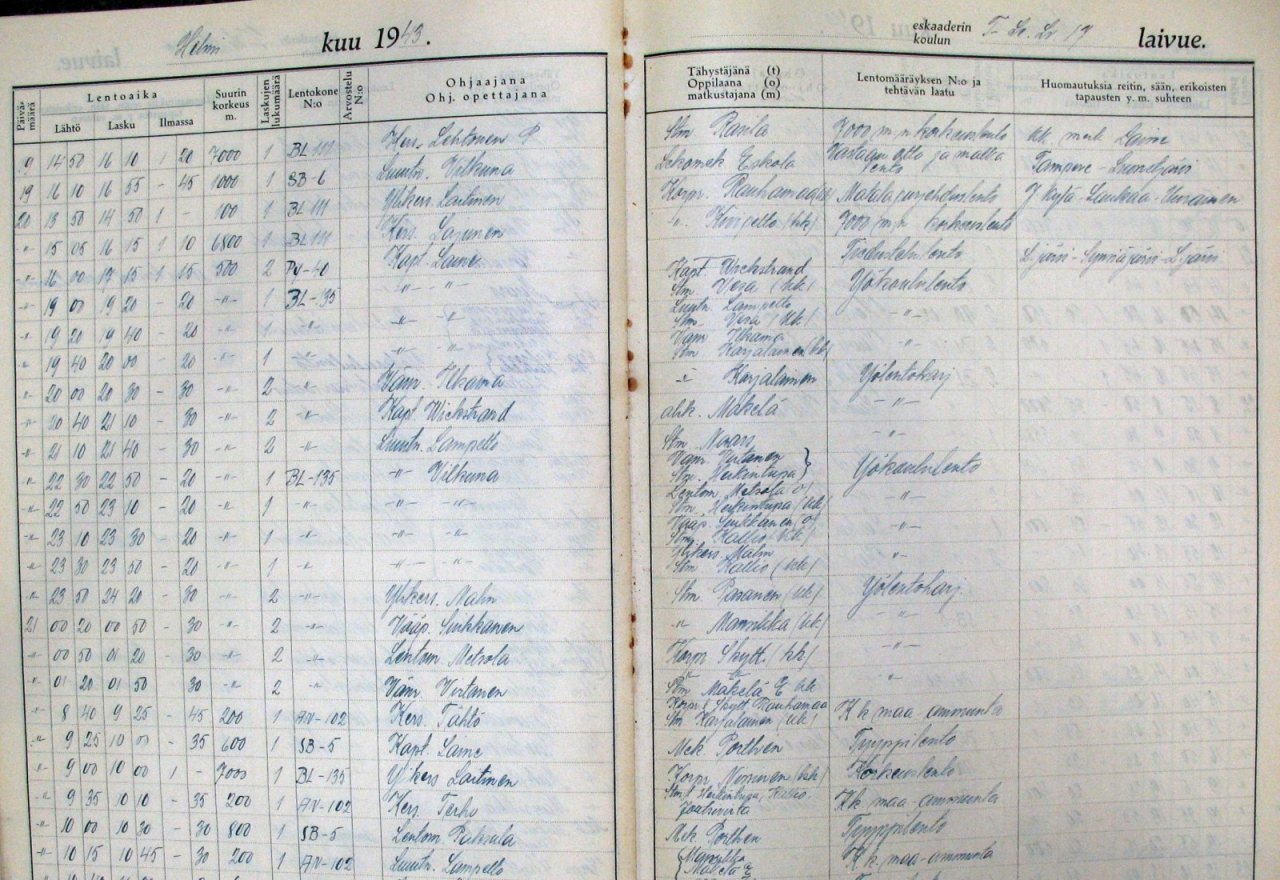 Helmi kuu 1943. eskaaderin koulun T-Le.Lv 17 laivue.
Päivämäärä Lentoaika Lähtö Lasku Ilmassa Suurin korkeus m. Laskujen lukumäärä Lentokone N:o Arvostelu N:o Ohjaajana Ohj. opettajana Tähystäjänä (t) Oppilaana (o) matkustajana (m) Lentomääräyksen N:o ja tehtävän laatu Huomautuksia reitin, sään, erikoisten tapausten y. m. suhteen
19 14 50 16 10 1 20 7000 1 BL 111 Kers. Lehtonen P Stm Rasila 7000 m,n korkeuslento kk. mek. Laine
19 16 10 16 55 - 45 1000 1 SB-6 Luutn. Vilkuna Eskola ja matka lento Tampere -
20 13 50 14 50 1 - 100 1 BL 111 Ylikers. Laitinen Korpr. Rauhamaa
-"- 15 05 16 15 1 10 6800 1 BL 111 Kers. Lajunen -"- 7000 m,n korkeuslento
-"- 16 00 17 15 1 15 500 2 Py-40 Kapt. Laine Kapt. Wickstrand Tiedustelulento
-"- 19 00 19 20 - 20 -"- 1 BL-135 -"- -"- Stm. Vesa (kk) Yökoululento
-"- 19 20 19 40 - 20 -"- 1 -"- -"- Luutn. Lampello Stm. Vesa (kk) -"-
-"- 19 40 20 00 - 20 -"- 1 -"- -"- Vänr. Ilkama Stm Karjalainen (kk) -"-
-"- 20 00 20 30 - 30 -"- 2 -"- Vänr. Ilkama -"- Karjalainen Yölentoharj
-"- 20 40 21 10 - 30 -"- 2 -"- Kapt. Wickstrand alik. Mäkelä -"-
-"- 21 10 21 40 - 30 -"- 2 -"- Luutn. Lampello Stm -"-
-"- 22 30 22 50 - 20 -"- 1 BL-135 -"- Vilkuna Vänr. Virtanen Stm. Heikintupa Yökoululento
-"- 22 50 23 10 - 20 -"- 1 -"- -"- -"- Lentom. Metsola (o) Stm. Heikintupa (kk) -"-
-"- 23 10 23 30 - 20 -"- 1 -"- -"- -"- Vääp. Suikkanen (o) Stm. Kallio (kk) -"-
-"- 23 30 23 50 - 20 -"- 1 -"- -"- -"- Ylikers. Malm Stm Kallio (kk) -"-
-"- 23 50 24 20 - 30 -"- 2 -"- Ylikers. Malm Stm. Pasanen (kk) Yölentoharj.
21 00 20 00 50 - 30 -"- 2 -"- Vääp. Suikkanen -"- Mansikka (kk) -"-
-"- 00 50 01 20 - 30 -"- 2 -"- Lentom. Metsola Korpr. Skytt. (kk) -"-
-"- 01 20 01 50 - 30 -"- 2 -"- Vänr. Virtanen Stm Mäkelä E kk -"-
-"- 8 40 9 25 - 45 200 1 AV-102 Kers. Tähtö Rauhamaa Stm. Karjalainen (kk) Kk maa ammunta
-"- 9 25 10 00 - 35 600 1 SB-5 Kapt. Laine Mek Porthen Tyyppilento
-"- 9 00 10 00 1 - 7000 1 BL-135 Ylikers Laitinen Korpr. Nieminen (kk) Korkeuslento
-"- 9 35 10 10 - 35 200 1 AV-102 Kers. Terho Stm:t Heikintupa, Kallio Kk maa ammunta
-"- 10 00 10 30 - 30 800 1 SB-5 Lentom. Pakkala Mek Porthen Tyyppilento
-"- 10 15 10 45 - 30 200 1 AV-102 Luutn. Lampello Mansikka Mäkelä E Kk. maa-ammunta